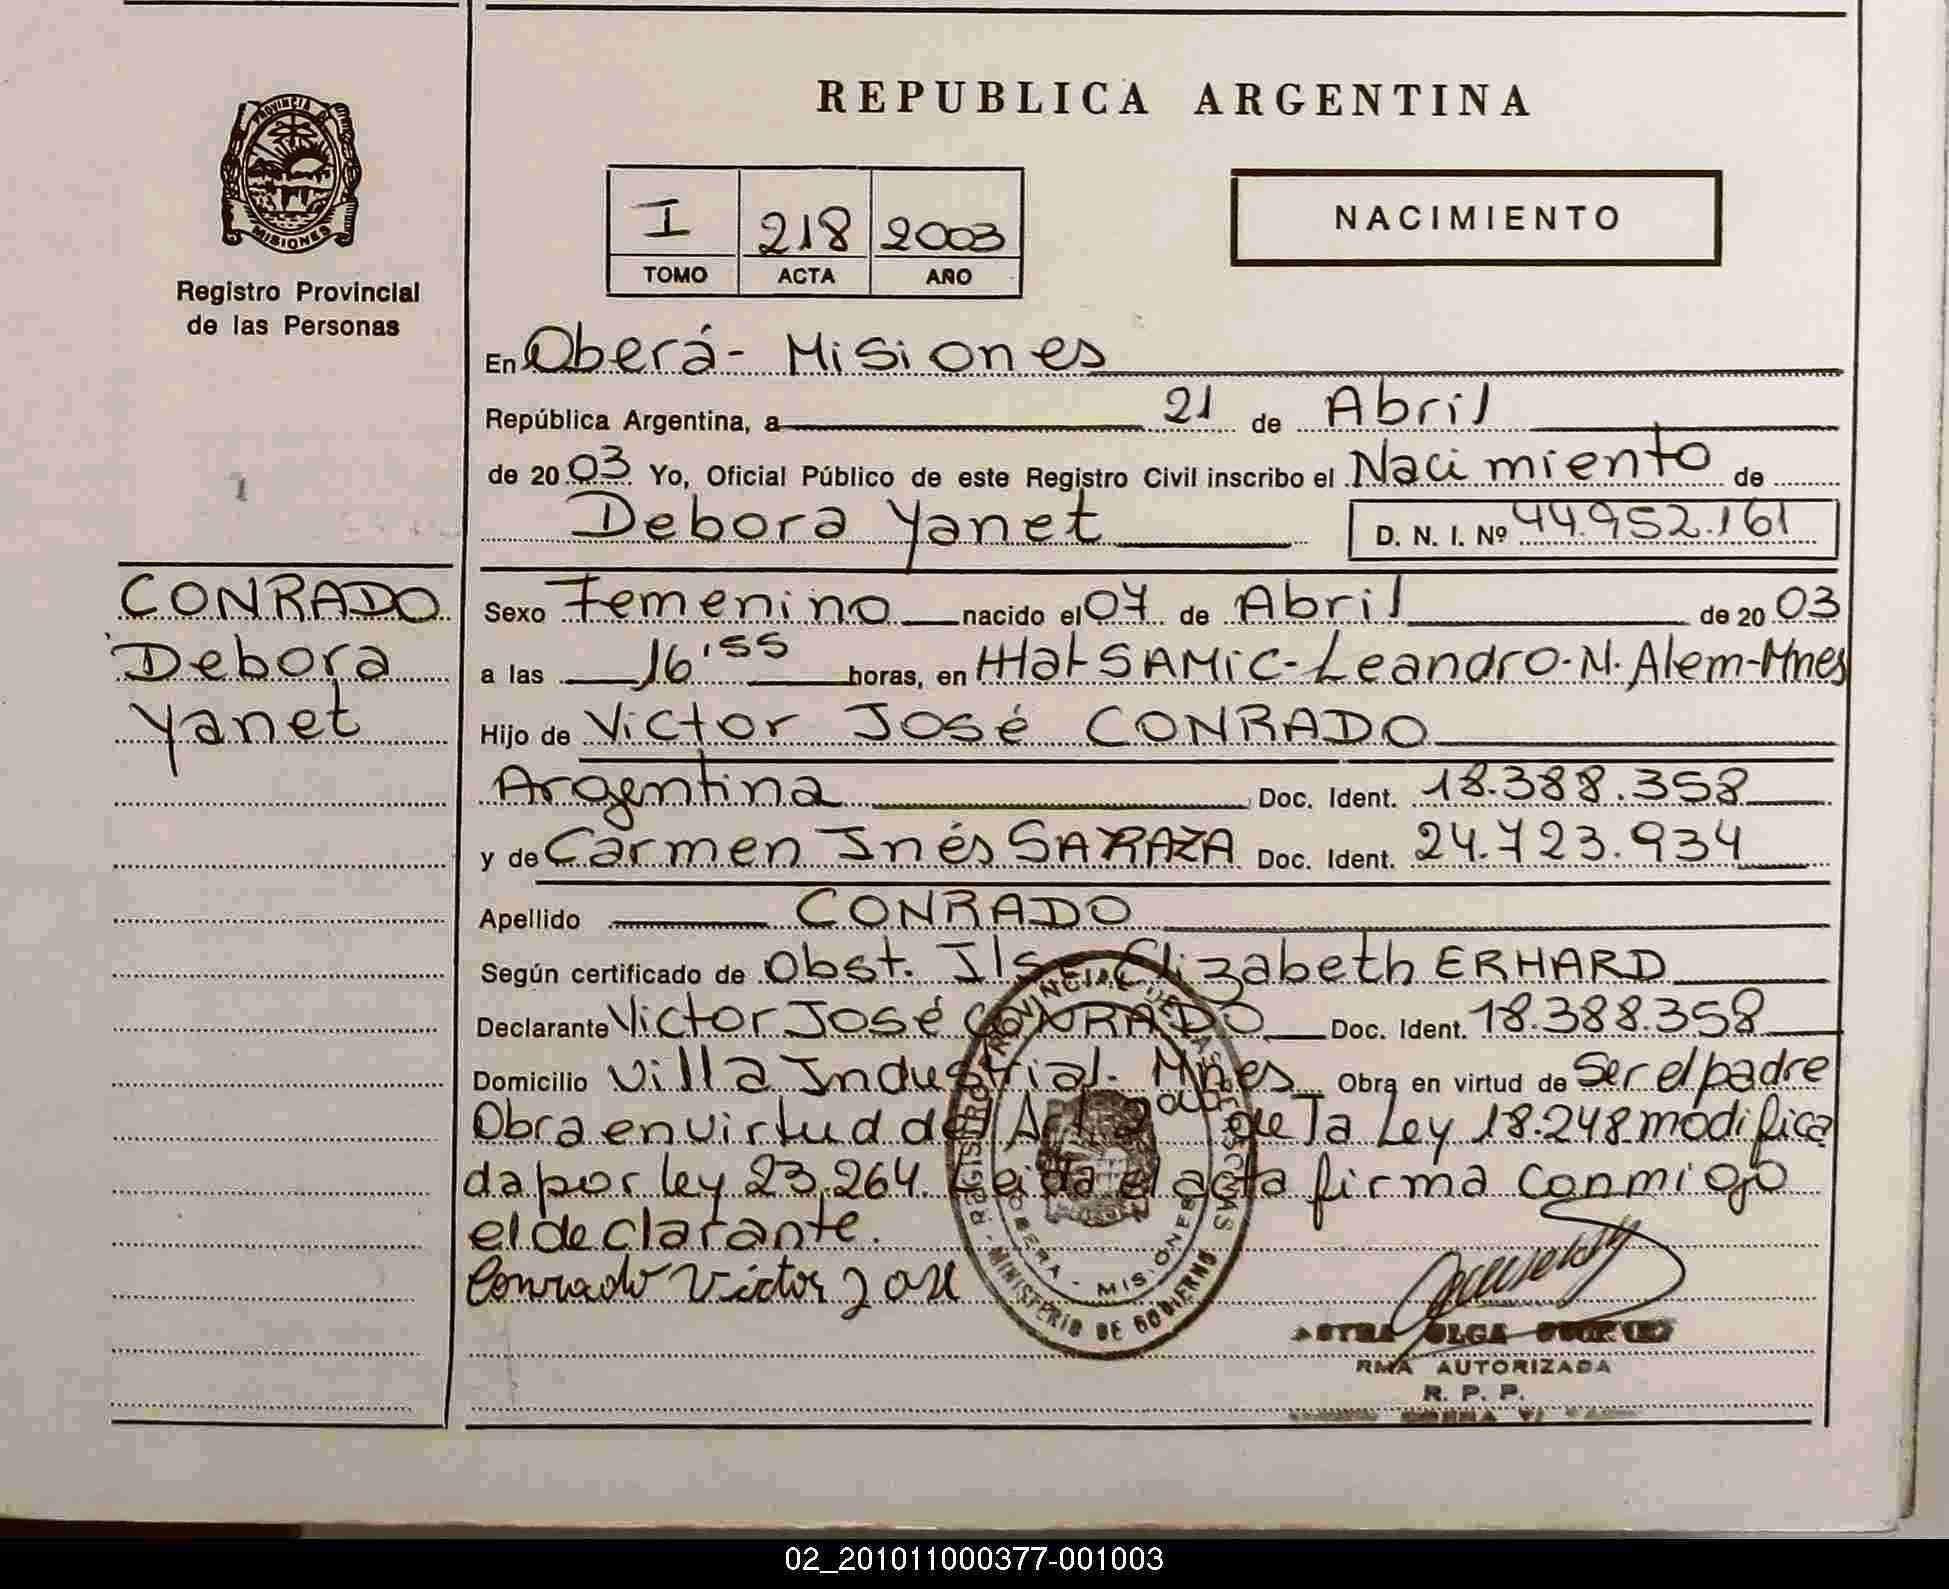 REPUBLICA ARGENTINA
PROVINCIA DE
MISIONES
Registro Provincial
de las Personas
I 218 2003
TOMO ACTA AÑO
NACIMIENTO
En Oberá- Misiones
República Argentina, a 21 de Abril
de 2003 Yo, Oficial Público de este Registro Civil inscribo el Nacimiento de
Debora Yanet D. N. I. Nº 44.952.161
CONRADO
Debora
Yanet
Sexo Femenino nacido el 07 de Abril de 2003
a las 16'55 horas, en Htal SAMIC-Leandro-N.Alem-Mnes
Hijo de Victor José CONRADO
Argentina Doc. Ident. 18.388.358
y de Carmen Inés SARAZA Doc. Ident. 24.723.934
Apellido CONRADO
Según certificado de Obst. Ilse Elizabeth ERHARD
Declarante Victor José CONRADO Doc. Ident. 18.388.358
Domicilio Villa Industrial. Mnes Obra en virtud de Ser el padre
Obra en virtud del Art 2º de la Ley 18.248 modifica
da por ley 23.264. Leida el acta firma conmigo
el declarante.
Conrado Victor José
REGISTRO PROVINCIAL DE LAS PERSONAS
OBERA - MISIONES
MINISTERIO DE GOBIERNO
OLGA
RMA AUTORIZADA
R. P. P.
02_201011000377-001003